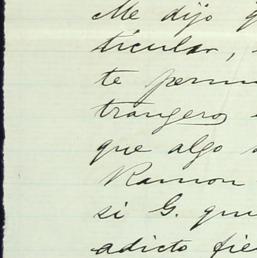 Me dijo q
ticular,
te permi
trangeros
que algo
Ramon
si G. que
adicto fie